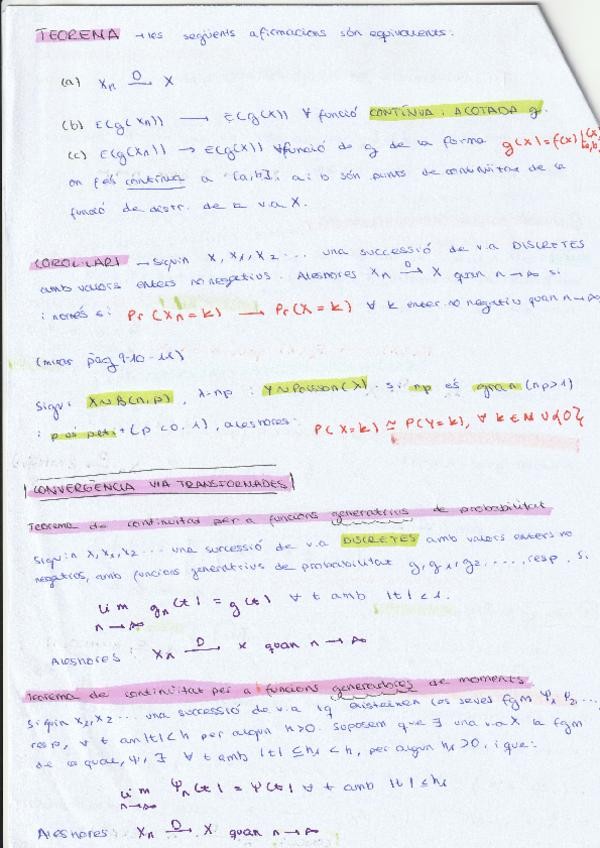 TEOREMA → les següents afirmacions són equivalents:
(a) Xn D→ X
(b) E(g(Xn)) → E(g(X)) ∀ funció CONTÍNUA i ACOTADA g.
(c) E(g(Xn)) → E(g(X)) ∀funció de g de la forma g(x)=f(x)|(x)[a,b]
on f és contínua a [a,b] i a i b són punts de continuïtat de la
funció de distr. de la v.a X.
COROL·LARI → Siguin X, X1, X2 ... una successió de v.a DISCRETES
amb valors enters no negatius. Aleshores Xn D→ X quan n→∞ si
i només si Pr(Xn=k) → Pr(X=k) ∀ k enter no negatiu quan n→∞
(mirar pàg 9-10-11)
Sigui X~B(n,p), λ=np i Y~Poisson(λ). Si np és gran (np>1)
i p és petit (p<0.1), aleshores: P(X=k) ≅ P(Y=k), ∀ k ∈ N ∪ {0}
CONVERGÈNCIA VIA TRANSFORMADES
Teorema de continuïtat per a funcions generatrius de probabilitat
Siguin X, X1, X2 ... una successió de v.a DISCRETES amb valors enters no
negatius, amb funcions generatrius de probabilitat g, g1, g2, ...., resp. Si
lim n→∞ gn(t) = g(t) ∀ t amb |t|<1.
Aleshores: Xn D→ X quan n→∞
Teorema de continuïtat per a funcions generadores de moments
Siguin X1, X2 ... una successió de v.a tq existeixen les seves fgm Ψ1, Ψ2, ...
resp, ∀ t amb |t|<h per algun h>0. Suposem que ∃ una v.a X la fgm
de la qual, Ψ, ∃ ∀ t amb |t| ≤ h1 < h, per algun h1>0, i que:
lim n→∞ Ψn(t) = Ψ(t) ∀ t amb |t| ≤ h1
Aleshores: Xn D→ X quan n→∞